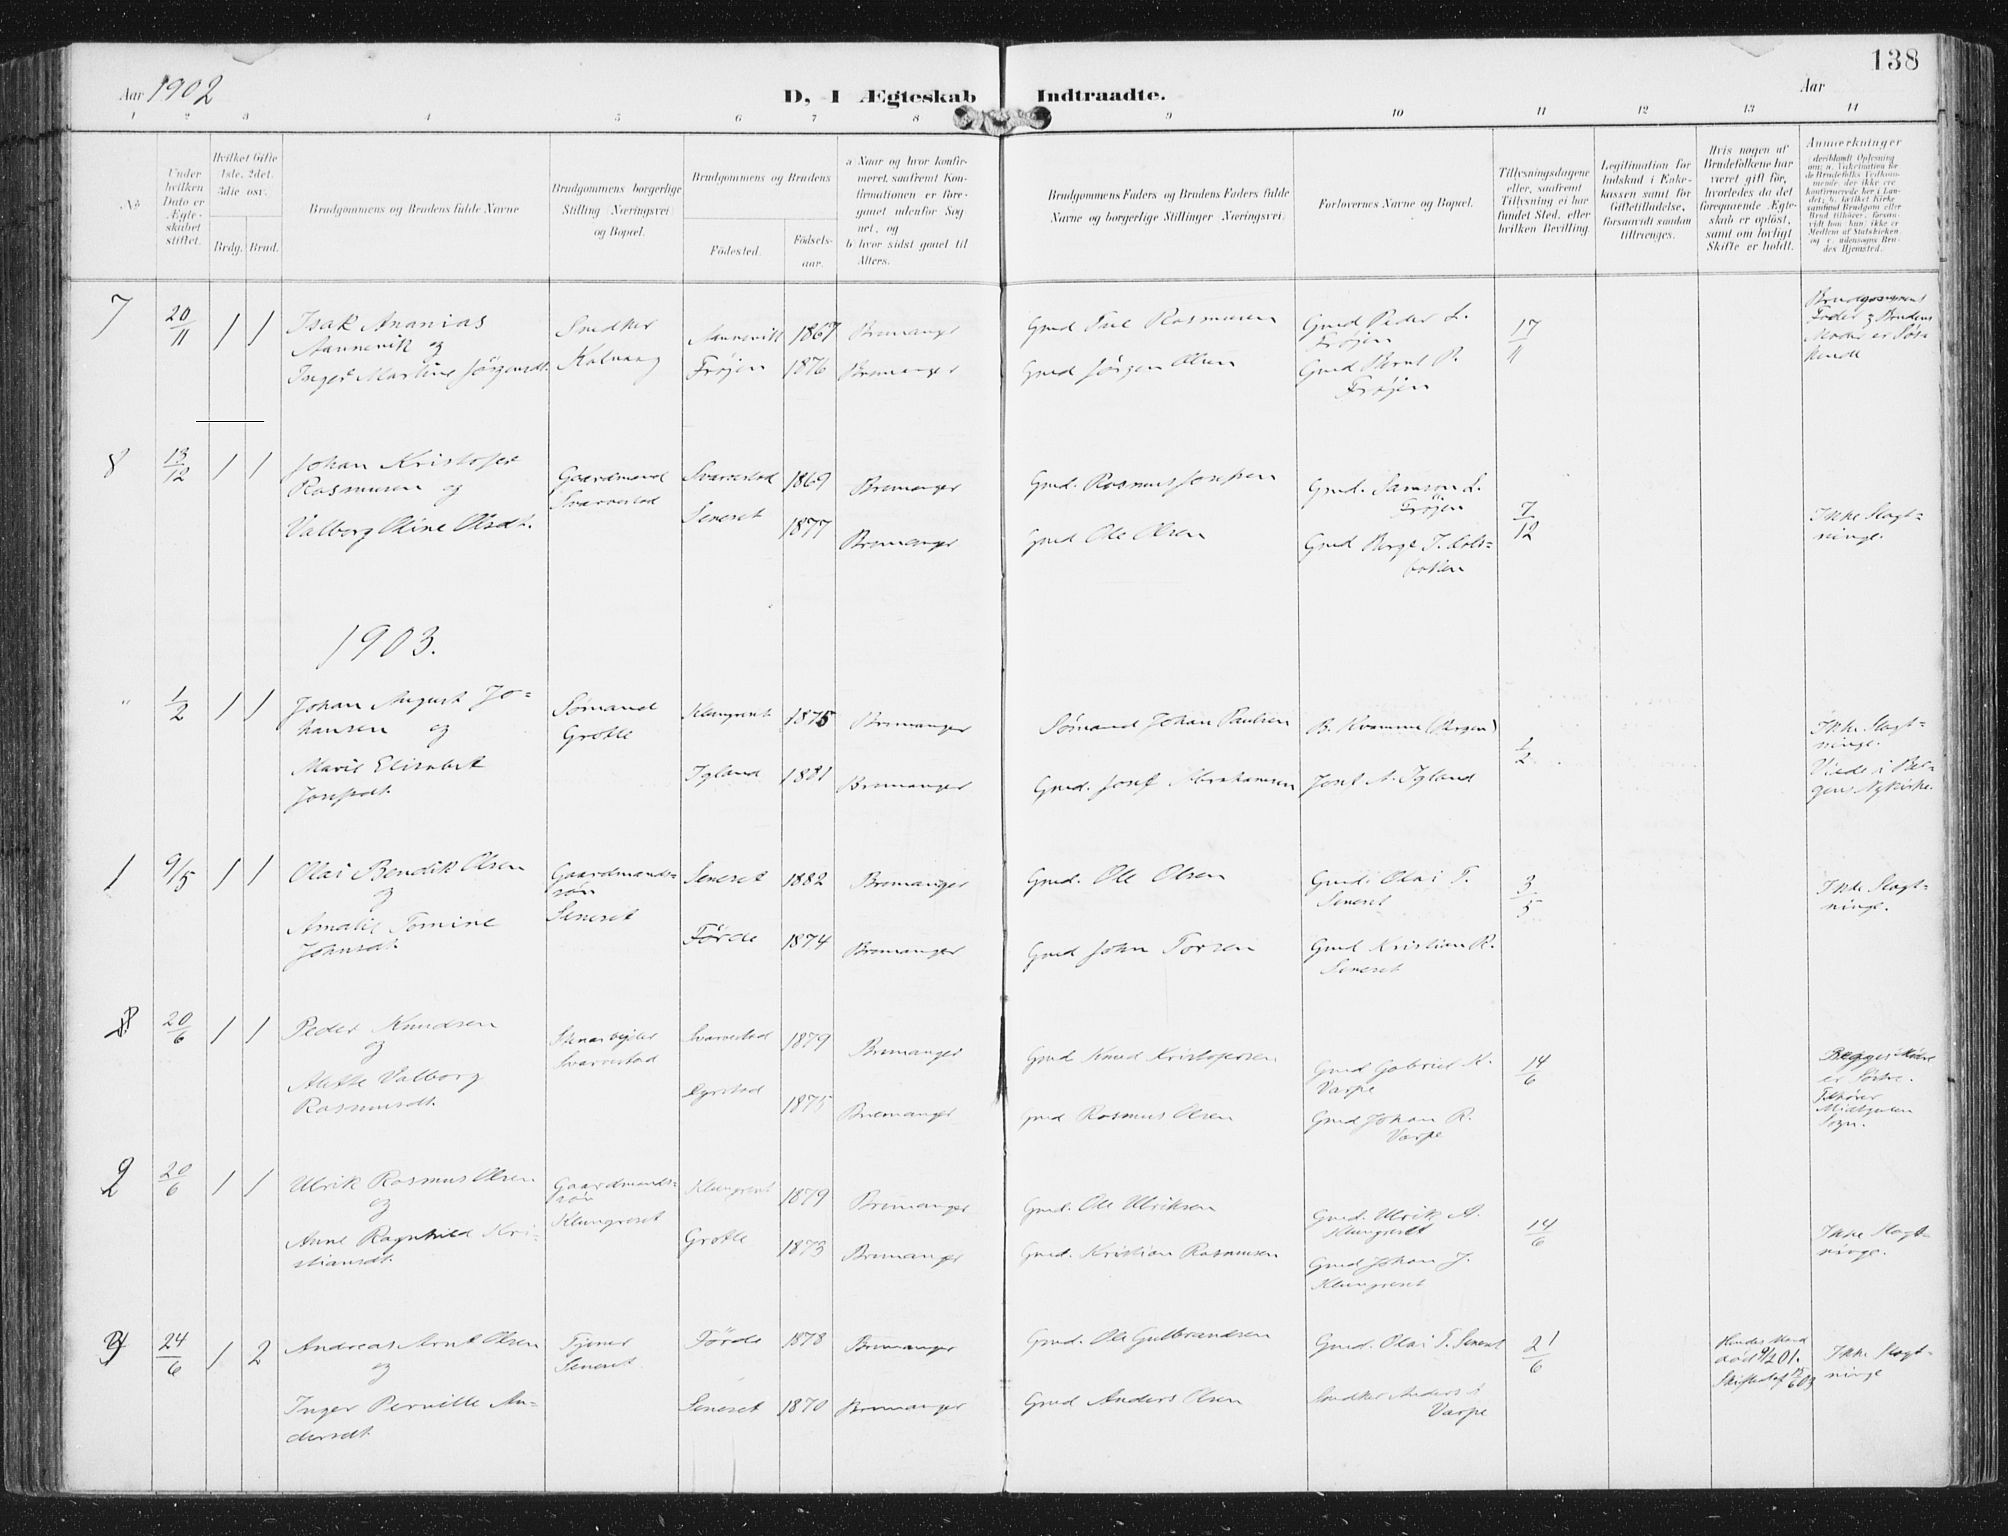 138
Aar 1902
D, I Ægteskab Indtraadte.
Aar
1 2 3 4 5 6 7 8 9 10 11 12 13 14
No
Under hvilken Dato er Ægteskabet stiftet.
Hvilket Gifte 1ste, 2det, 3die osv.
Brdg. Brud.
Brudgommens og Brudens fulde Navne
Brudgommens borgerlige Stilling (Næringsvei) og Bopæl.
Brudgommens og Brudens
Fødested.
Fødselsaar.
a Naar og hvor konfirmeret, saafremt Konfirmationen er foregaaet udenfor Sognet, og
b hvor sidst gaaet til Alters.
Brudgommens Faders og Brudens Faders fulde Navne og borgerlige Stillinger (Næringsvei).
Forlovernes Navne og Bopæl.
Tillysningsdagene eller, saafremt Tillysning ei har fundet Sted, efter hvilken Bevilling.
Legitimation for Indskud i Enkekassen samt for Giftetilladelse, forsaavidt saadan tiltrænges.
Hvis nogen af Brudefolkene har været gift før, hvorledes da det foregaaende Ægteskab er opløst, samt om lovligt Skifte er holdt.
Anmærkninger
7 20/11 1 1 Isak Ananias
Aannevik og
Inger Martine Jörgensdt.
Snedker
Kalvaag
Aannevik 1867 Bremanger
Frøjen 1876 Bremanger
Gmd Rasmusen
Gmd Jörgen Olsen
Gmd Peder L.
Frøjen
Gmd Bernt P.
Frøjen
17/11
Brudgommens
Fader og Brudens
Moder er Søskende
8 13/12 1 1 Johan Kristofer
Rasmusen og
Valborg Oline Olsdt.
Gaardmand
Svarvestad
Svarvestad 1869 Bremanger
Seneset 1877 Bremanger
Gmd. Rasmus Josefsen
Gmd Ole Olsen
Gmd. Samson L.
Frøjen
Gmd Børge J.
7/12
Ikke Slægtninge.
1903.
" 1/2 1 1 Johan August Johansen og
Marie Elisabet
Josefsdt.
Sømand
Grotle
Klungreset 1875 Bremanger
Igland 1881 Bremanger
Sømand Johan Paulsen
Gmd. Josef Abrahamsen
B. Kvamme (Bergen)
Josef A. Igland
1/2
Ikke Slægtninge.
Viede i Bergens Nykirke.
1 9/5 1 1 Olai Bendik Olsen
og
Amalie Tomine
Johnsdt.
Gaardmandssøn
Seneset
Seneset 1882 Bremanger
Førde 1874 Bremanger
Gmd. Ole Olsen
Gmd John Torsen
Gmd. Olai T.
Seneset
Gmd Kristian R.
Seneset
3/5
Ikke Slægtninge.
20/6 1 1 Peder Knudsen
og
Alette Valborg
Rasmusdt.
Stenarbejder
Svarvestad
Svarvestad 1879 Bremanger
1875 Bremanger
Gmd Knud Kristofersen
Gmd Rasmus Olsen
Gmd Gabriel K.
Varpe
Gmd Johan R.
Varpe
14/6
Begges Mødre
er Søstre.
Tilhører
Midtgulen
Sogn.
2 20/6 1 1 Ulrik Rasmus Olsen
og
Anne Ragnhild Kristiansdt.
Gaardmandssøn
Klungreset
Klungreset 1879 Bremanger
Grotle 1873 Bremanger
Gmd. Ole Ulriksen
Gmd. Kristian Rasmusen
Gmd. Ulrik A.
Klungreset
Gmd Johan J.
Klungreset
14/6
Ikke Slægtninge.
24/6 1 2 Andreas Arnt Olsen
og
Inger Pernille Andersdt.
Tjener
Seneset
Førde 1878 Bremanger
Seneset 1870 Bremanger
Gmd. Ole Gulbrandsen
Gmd Anders Olsen
Gmd. Olai T. Seneset
Snedker Anders A
Varpe
21/6
Hendes Mand
død
Ikke Slægtninge